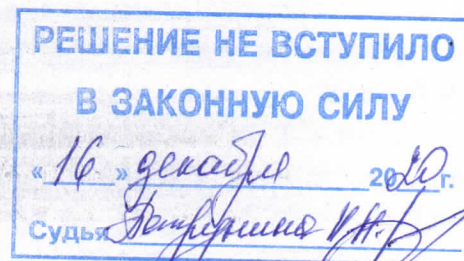 РЕШЕНИЕ НЕ ВСТУПИЛО
В ЗАКОННУЮ СИЛУ
«16» декабря 2020 г.
Судья